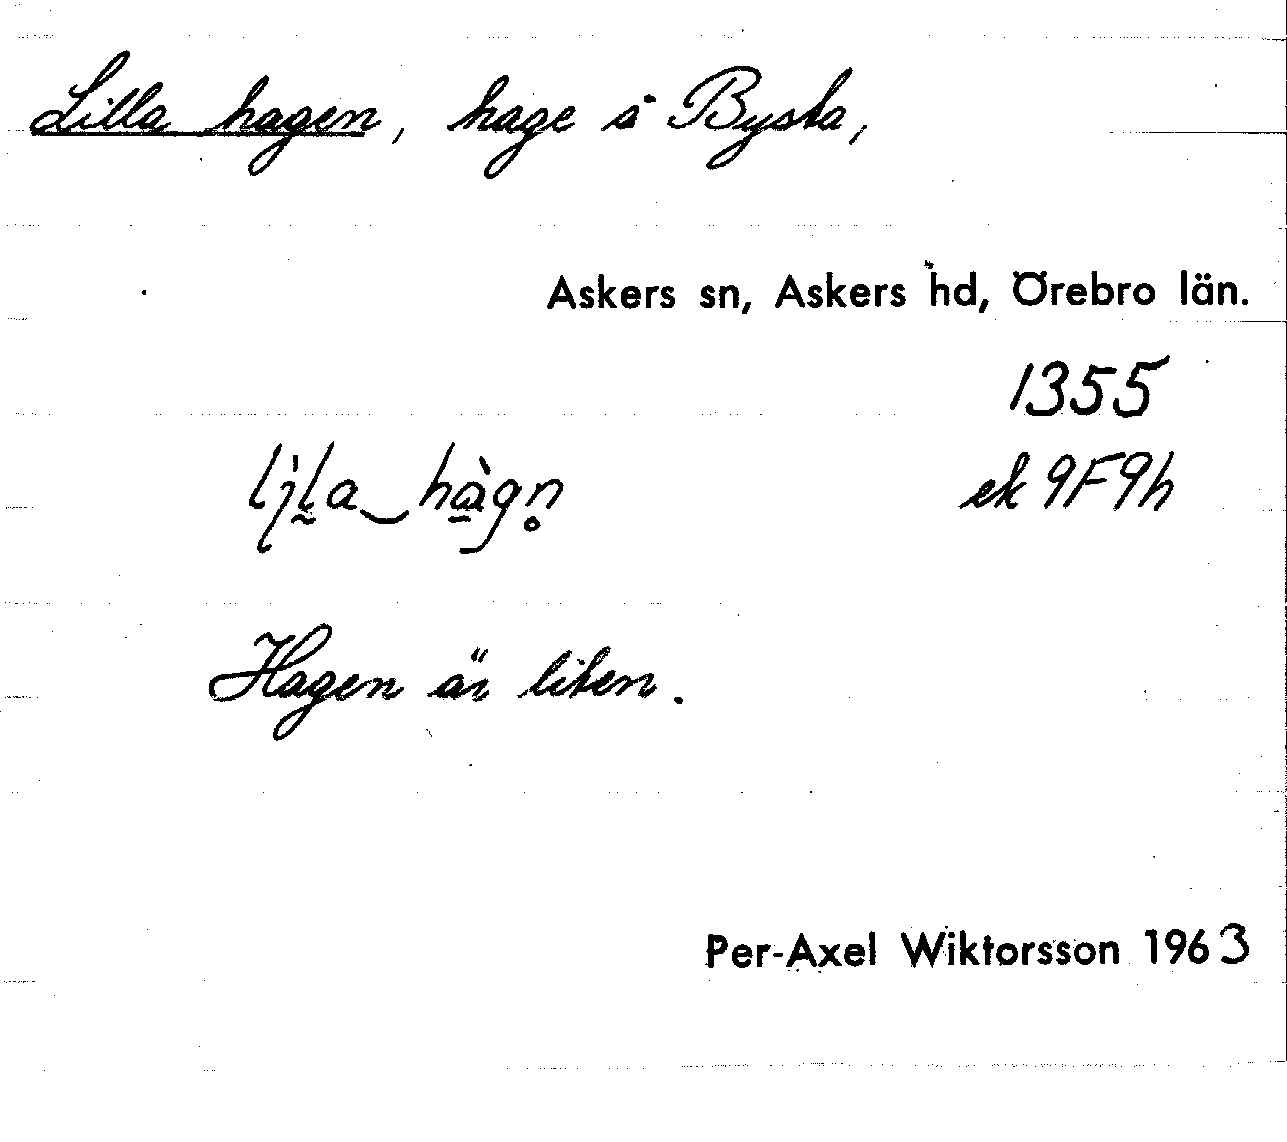 Lilla hagen, hage å Bysta,
Askers sn, Askers hd, Örebro län.
1355
ek 9F9h
Hagen är liten.
Per-Axel Wiktorsson 1963